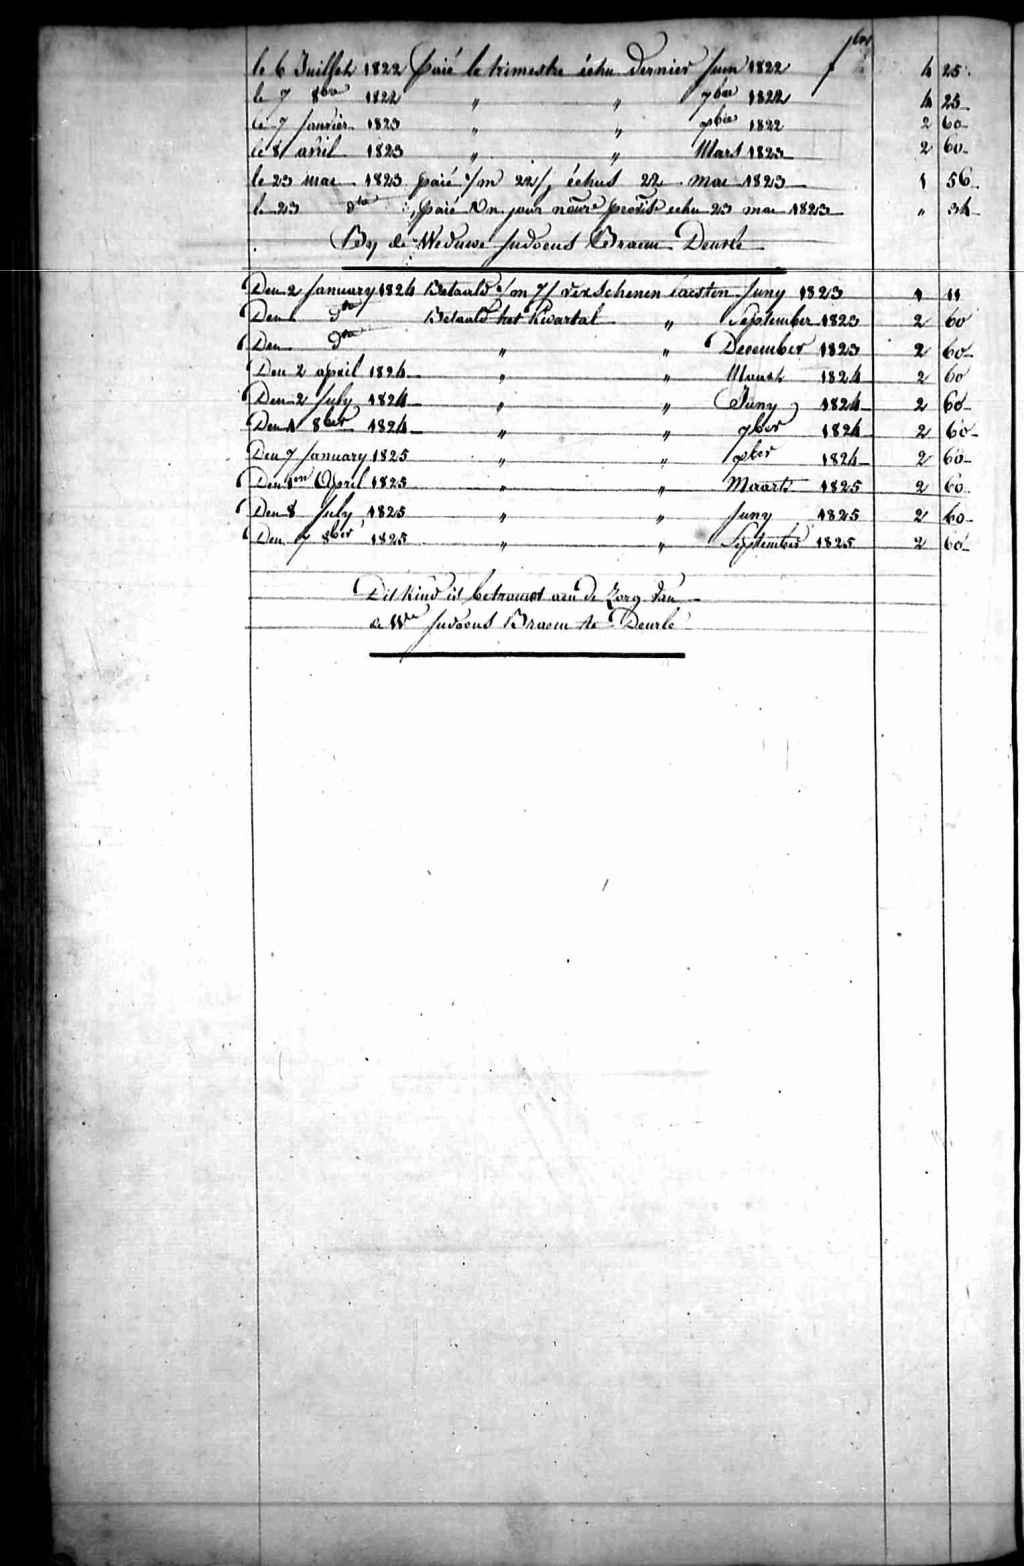 le 6 Juillet 1822 paié le trimestre échu dernier Juin 1822 f 4 25
le 7 8bre 1822 " " 7bre 1822 4 25
le 7 Janvier 1823 " " xbre 1822 2 60
le 8 avril 1823 " " Mars 1823 2 60
le 23 mai 1823 paié 1/m 22/j échus 22 mai 1823 1 56
le 23 do paié échu 23 mai 1823 " 34
By de Weduwe Judocus Braem Deurle
Den 2 January 1824 Betaald 1/m 7/ verschenen laesten Juny 1823 1 11
Den do Betaald het Kwartal " September 1823 2 60
Den do " " December 1823 2 60
Den 2 april 1824 " " Maart 1824 2 60
Den 2 July 1824 " " Juny 1824 2 60
Den 1 8ber 1824 " " 7ber 1824 2 60
Den 7 January 1825 " " xber 1824 2 60
Den 1en April 1825 " " Maarts 1825 2 60
Den 8 July 1825 " " Juny 1825 2 60
Den 7 8ber 1825 " " September 1825 2 60
Dit kind is betrouwt aen de Zorg van
de We Judocus Braem te Deurle